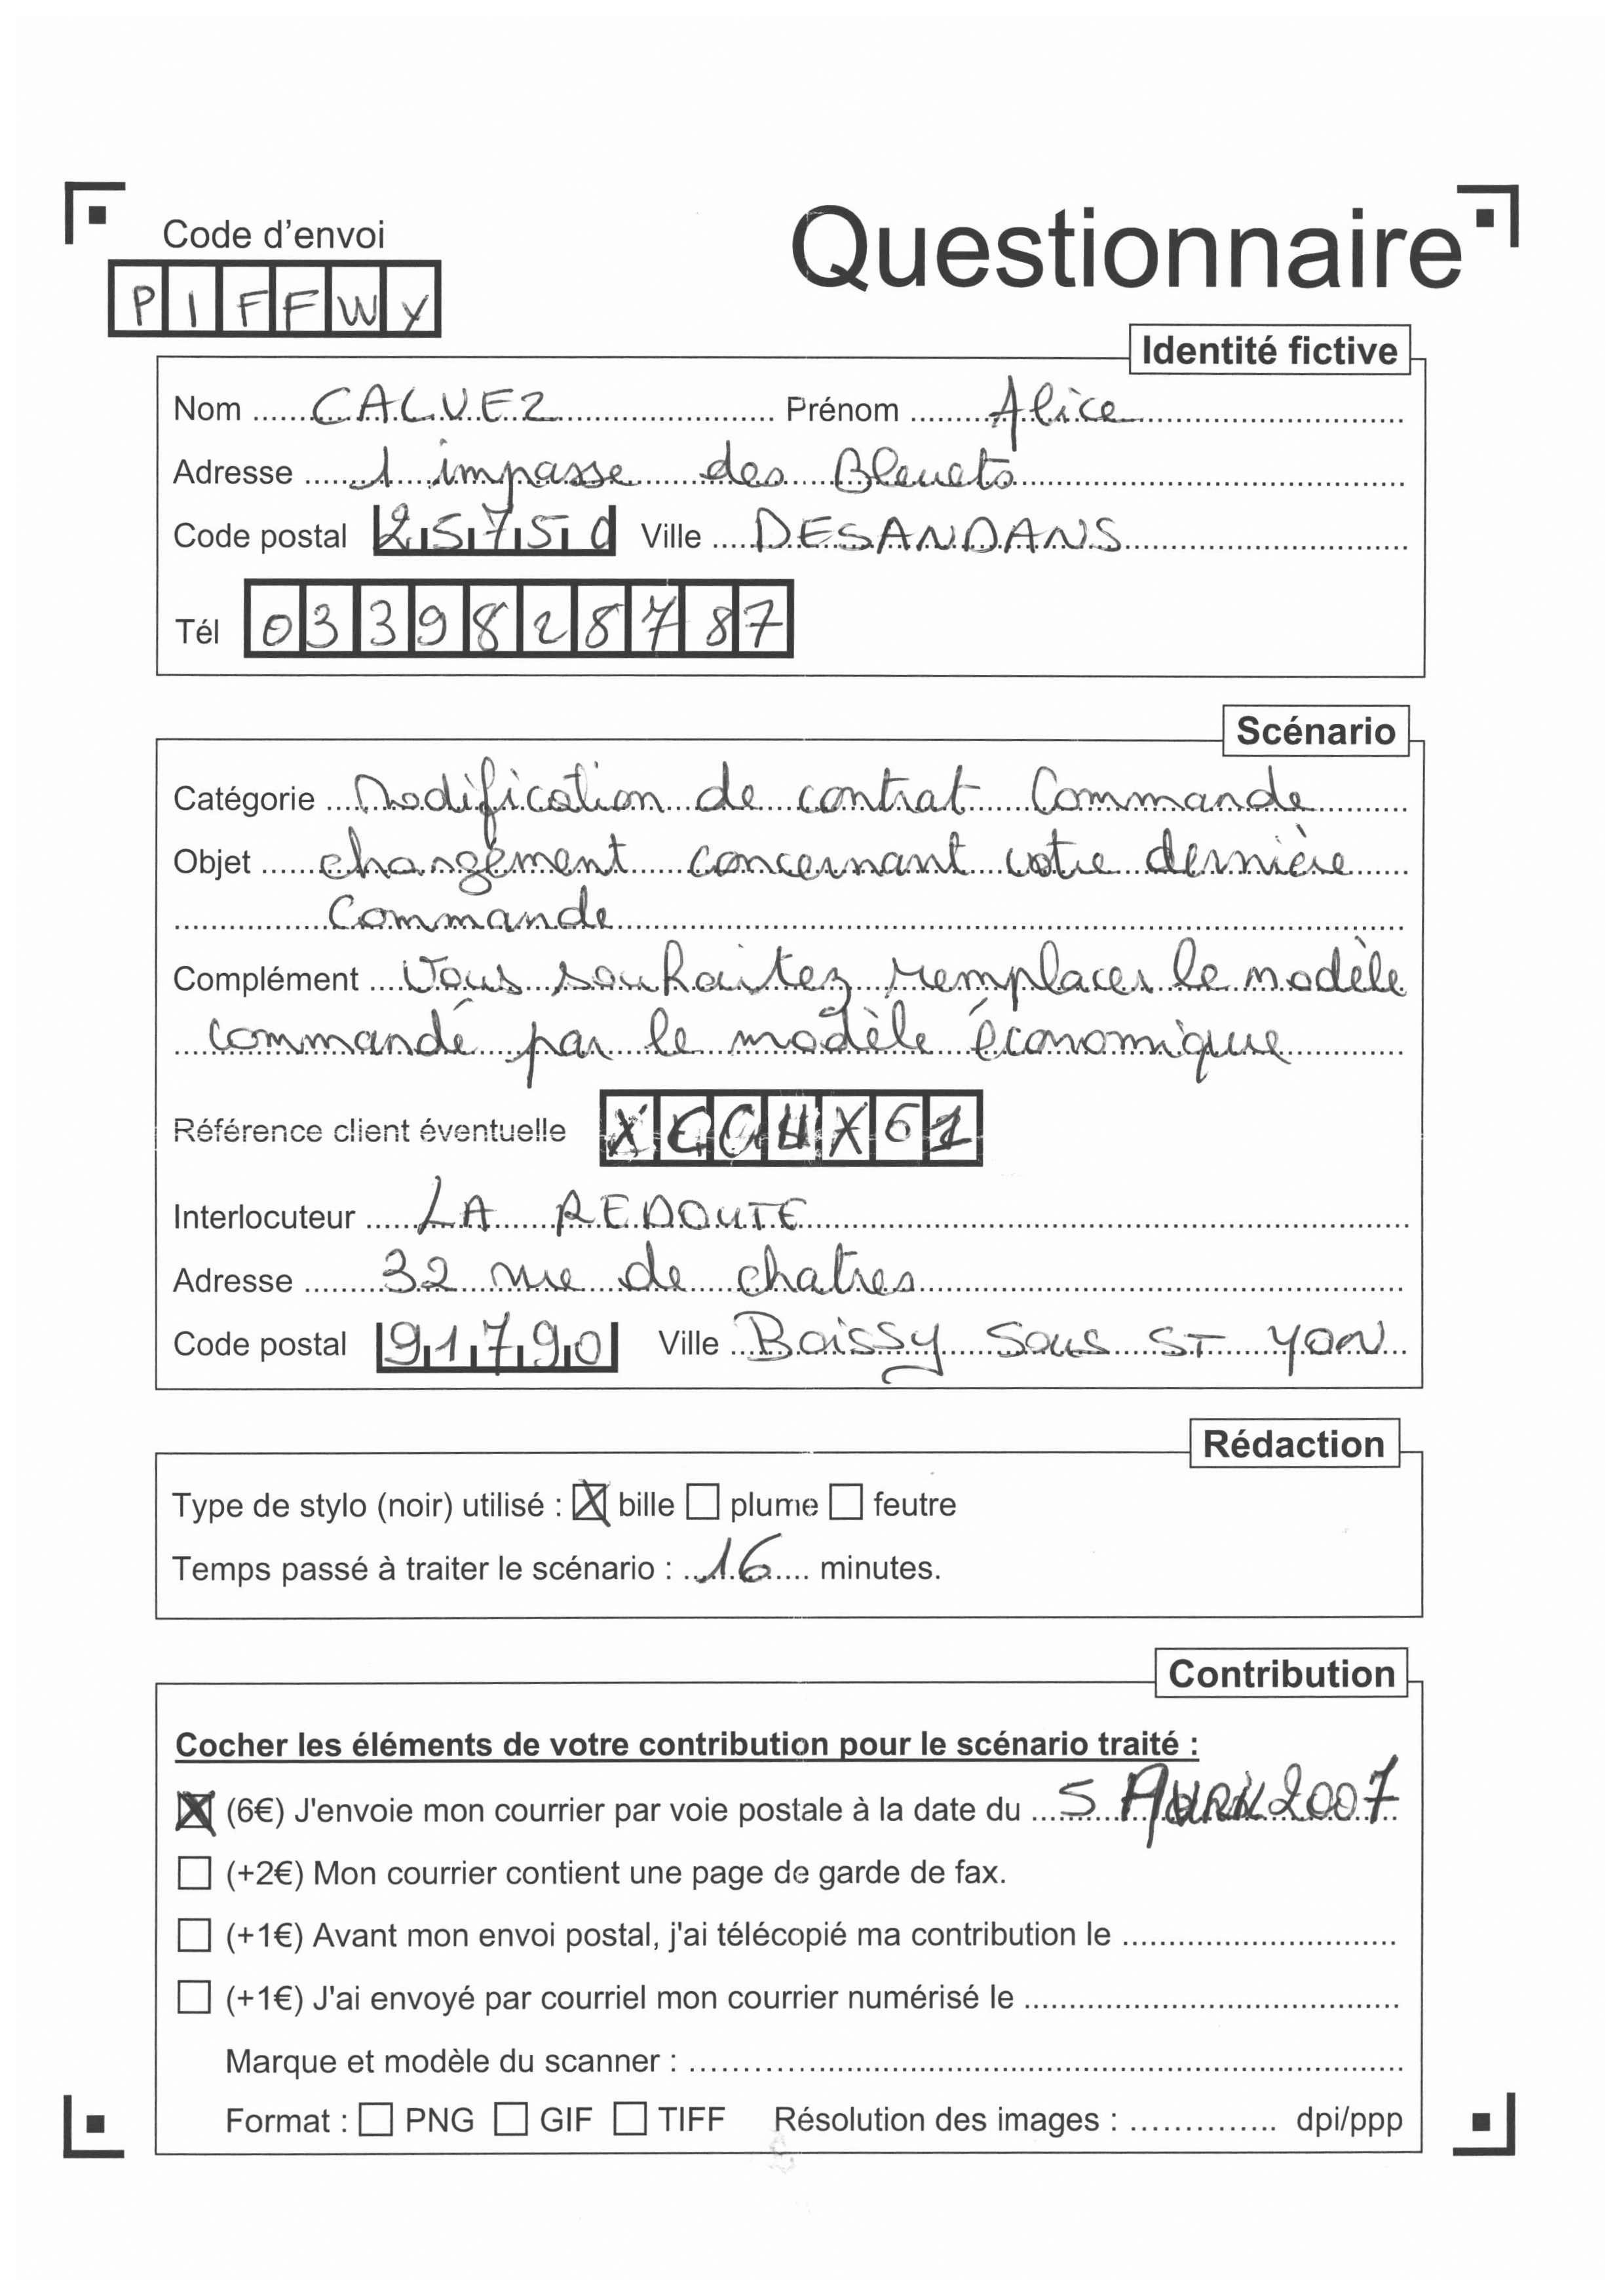 Code d'envoi
Questionnaire
PIFFWY
Identité fictive
Nom CALVEZ Prénom Alice
Adresse 1 impasse des Bleuets
Code postal 25750 Ville DESANDANS
Tél 0339828787
Scénario
Catégorie Modification de contrat Commande
Objet changement concernant votre dernière
Commande
Complément Vous souhaitez remplacer le modèle
commandé par le modèle économique
Référence client éventuelle
Interlocuteur LA REDOUTE
Adresse 32 rue de chatres
Code postal 91790 Ville Boissy Sous ST YON
Rédaction
Type de stylo (noir) utilisé : ☒ bille ☐ plume ☐ feutre
Temps passé à traiter le scénario : 16 minutes.
Contribution
Cocher les éléments de votre contribution pour le scénario traité :
☒ (6€) J'envoie mon courrier par voie postale à la date du 5 AVRIL 2007
☐ (+2€) Mon courrier contient une page de garde de fax.
☐ (+1€) Avant mon envoi postal, j'ai télécopié ma contribution le
☐ (+1€) J'ai envoyé par courriel mon courrier numérisé le
Marque et modèle du scanner :
Format : ☐ PNG ☐ GIF ☐ TIFF Résolution des images : dpi/ppp